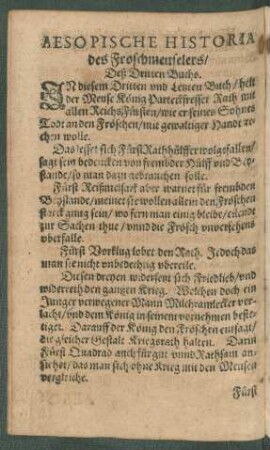 AESOPISCHE HISTORIA
des Froschmeuselers/
Deß Dritten Buchs.
IN diesem Dritten und Letzten Buch / helt
der Meuse König Parteckfresser Rath mit
allen Reichs Fürsten / wie er seines Sohnes
Todt an den Fröschen / mit gewaltiger Handt re-
chen wolle.
Das lesset sich Fürst Rathhülffer wolgefallen /
sagt sein bedencken von frembder Hülff und Bey-
stande / so man dazu gebrauchen solle.
Fürst aber warnet für frembden
Beystande / meinet sie wollen allein den Fröschen
starck gnug sein / wo fern man einig bleibe / eilende
zur Sachen thue / unnd die Frösch unversehens
uberfalle.
Fürst Vorklug lobet den Rath. Jedoch das
man sie nicht undbedechtig ubereile.
Diesen dreyen widersetzt sich Friedlich / und
widerreth den gantzen Krieg. Welchen doch ein
Junger verwegener Mann Milchramlecker ver-
lacht / und dem König in seinem vornehmen beste-
tiget. Darauff der König den Fröschen entsagt /
die gleicher Gestalt Kriegsrath halten. Darin
Fürst Quadrad auch für gut unnd Rathsam an-
siehet / das man sich ohne Krieg mit den Meusen
vergliche.
Fürst